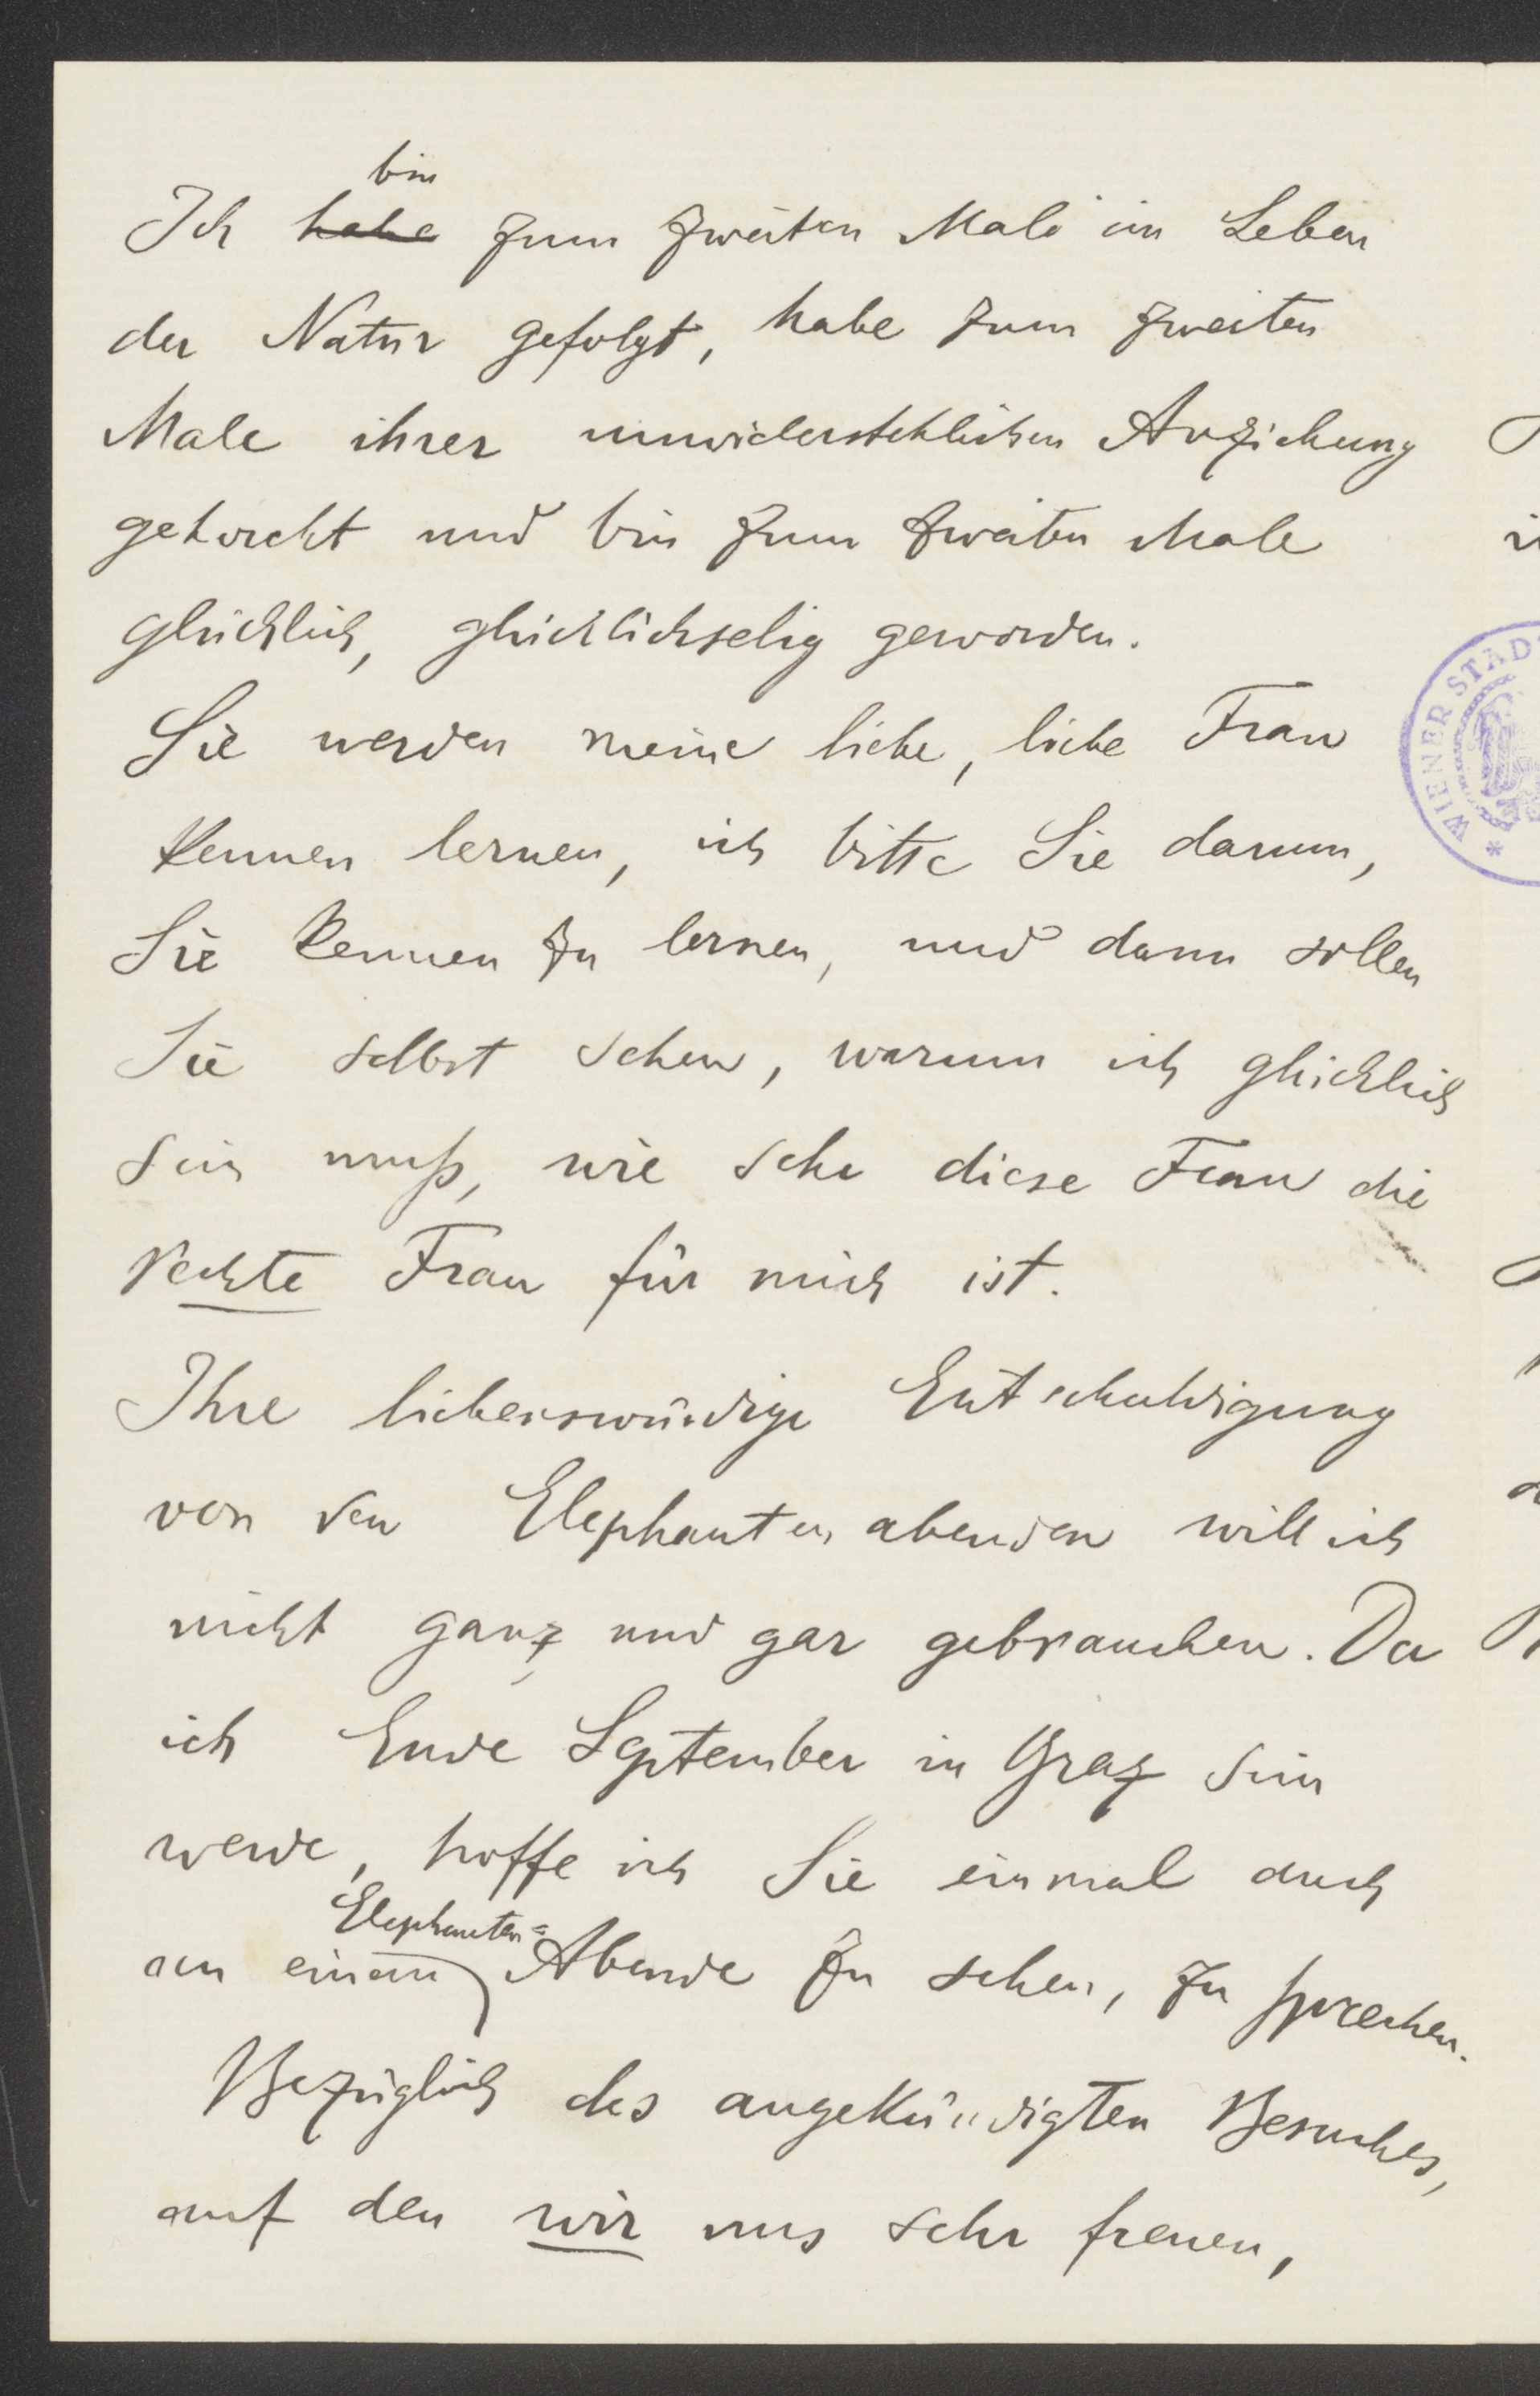 bin
Ich habe zum zweiten Male im Leben
der Natur gefolgt, habe zum zweiten
Male ihrer unwiderstehlichen Anziehung
gehorcht und bin zum zweiten Male
glücklich, glücklichselig geworden.
Sie werden meine liebe, liebe Frau
kennen lernen, ich bitte Sie darum,
Sie kennen zu lernen, und dann sollen
Sie selbst sehen, warum ich glücklich
sein muß, wie sehr diese Frau die
rechte Frau für mich ist.
Ihre liebenswürdige Entschuldigung
von den Elephantenabenden will ich
nicht ganz und gar gebrauchen. Da
ich Ende September in Graz sein
werde, hoffe ich Sie einmal auch
Elephanten=
an einem Abende zu sehen, zu sprechen.
Bezüglich des angekündigten Besuches,
auf den wir uns sehr freuen,
WIENER STAD